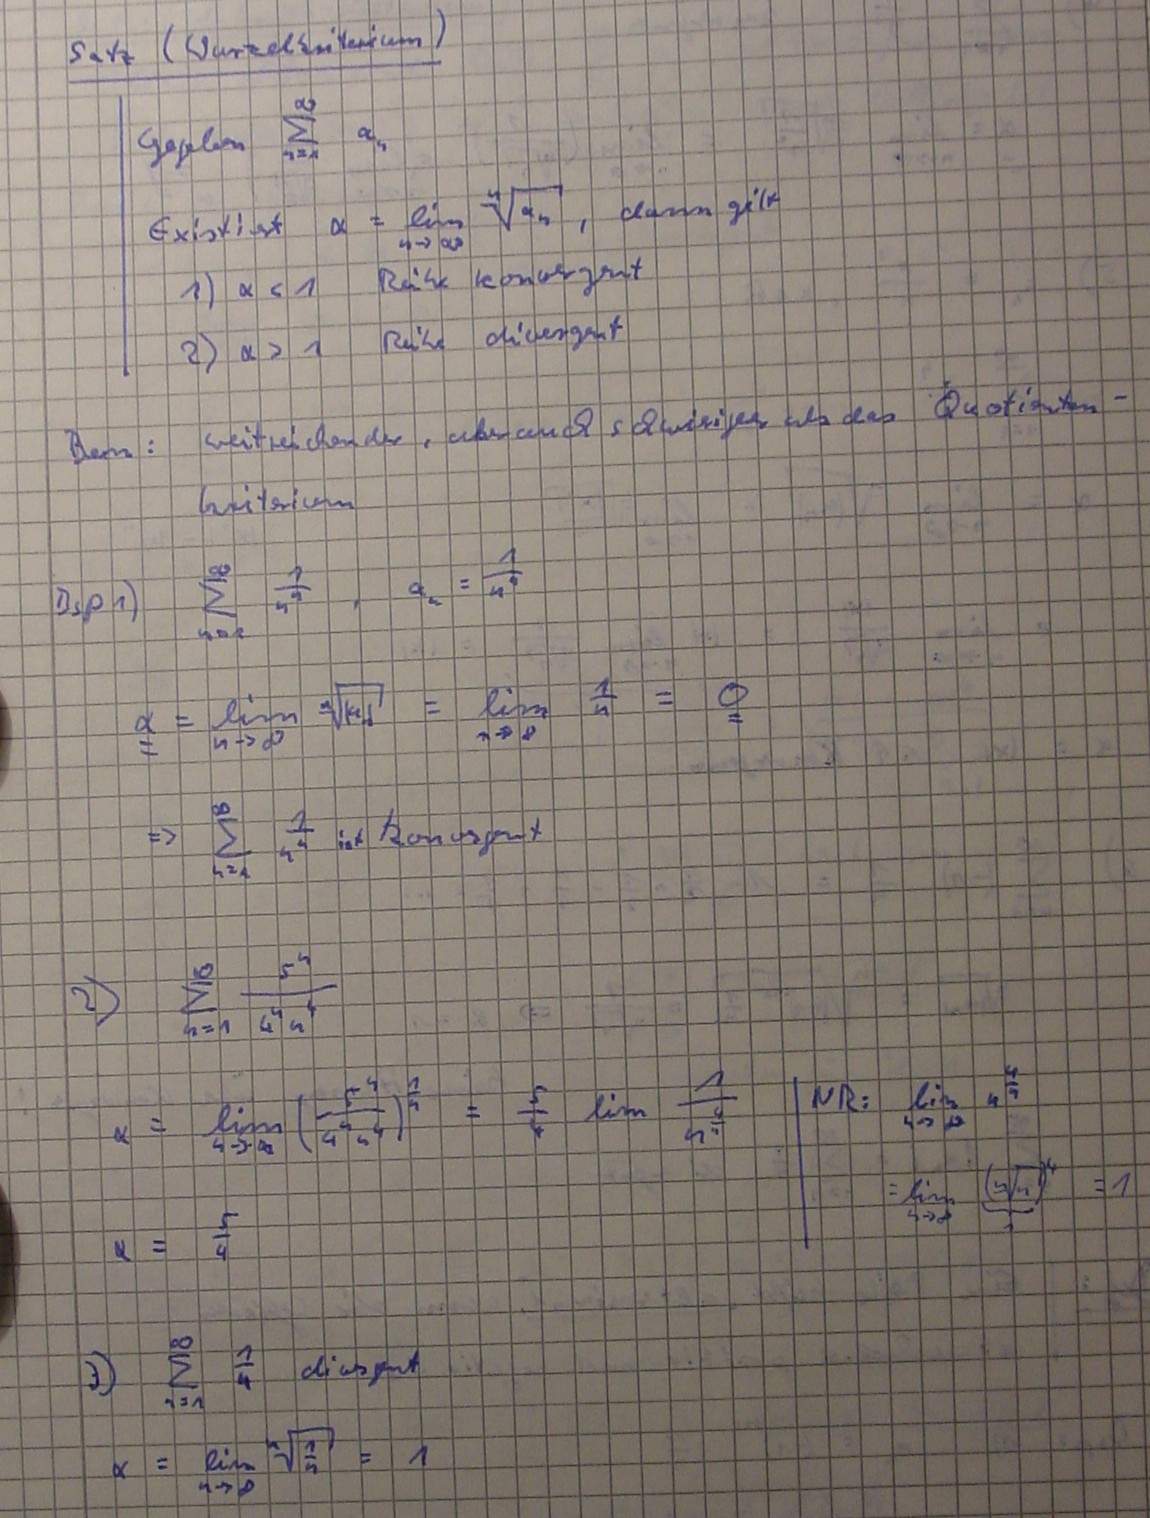 Satz (Wurzelkriterium)
Gegeben ∑_{n=1}^{∞} a_n
Existiert α = lim_{n→∞} ⁿ√a_n , dann gilt
1) α < 1 Reihe konvergent
2) α > 1 Reihe divergent
Bem: weitreichender, aber auch schwieriger als das Quotienten-
kriterium
Bsp 1) ∑_{n=1}^{∞} 1/n^n , a_n = 1/n^n
α = lim_{n→∞} ⁿ√|a_n| = lim_{n→∞} 1/n = 0
=> ∑_{n=1}^{∞} 1/n^n ist konvergent
2) ∑_{n=1}^{∞} 5^n / (4^n n^4)
α = lim_{n→∞} (5^n / (4^n n^4))^{1/n} = 5/4 lim 1 / n^{4/n}
NR: lim_{n→∞} n^{4/n}
= lim_{n→∞} (ⁿ√n)^4 = 1
1
α = 5/4
3) ∑_{n=1}^{∞} 1/n divergent
α = lim_{n→∞} ⁿ√(1/n) = 1